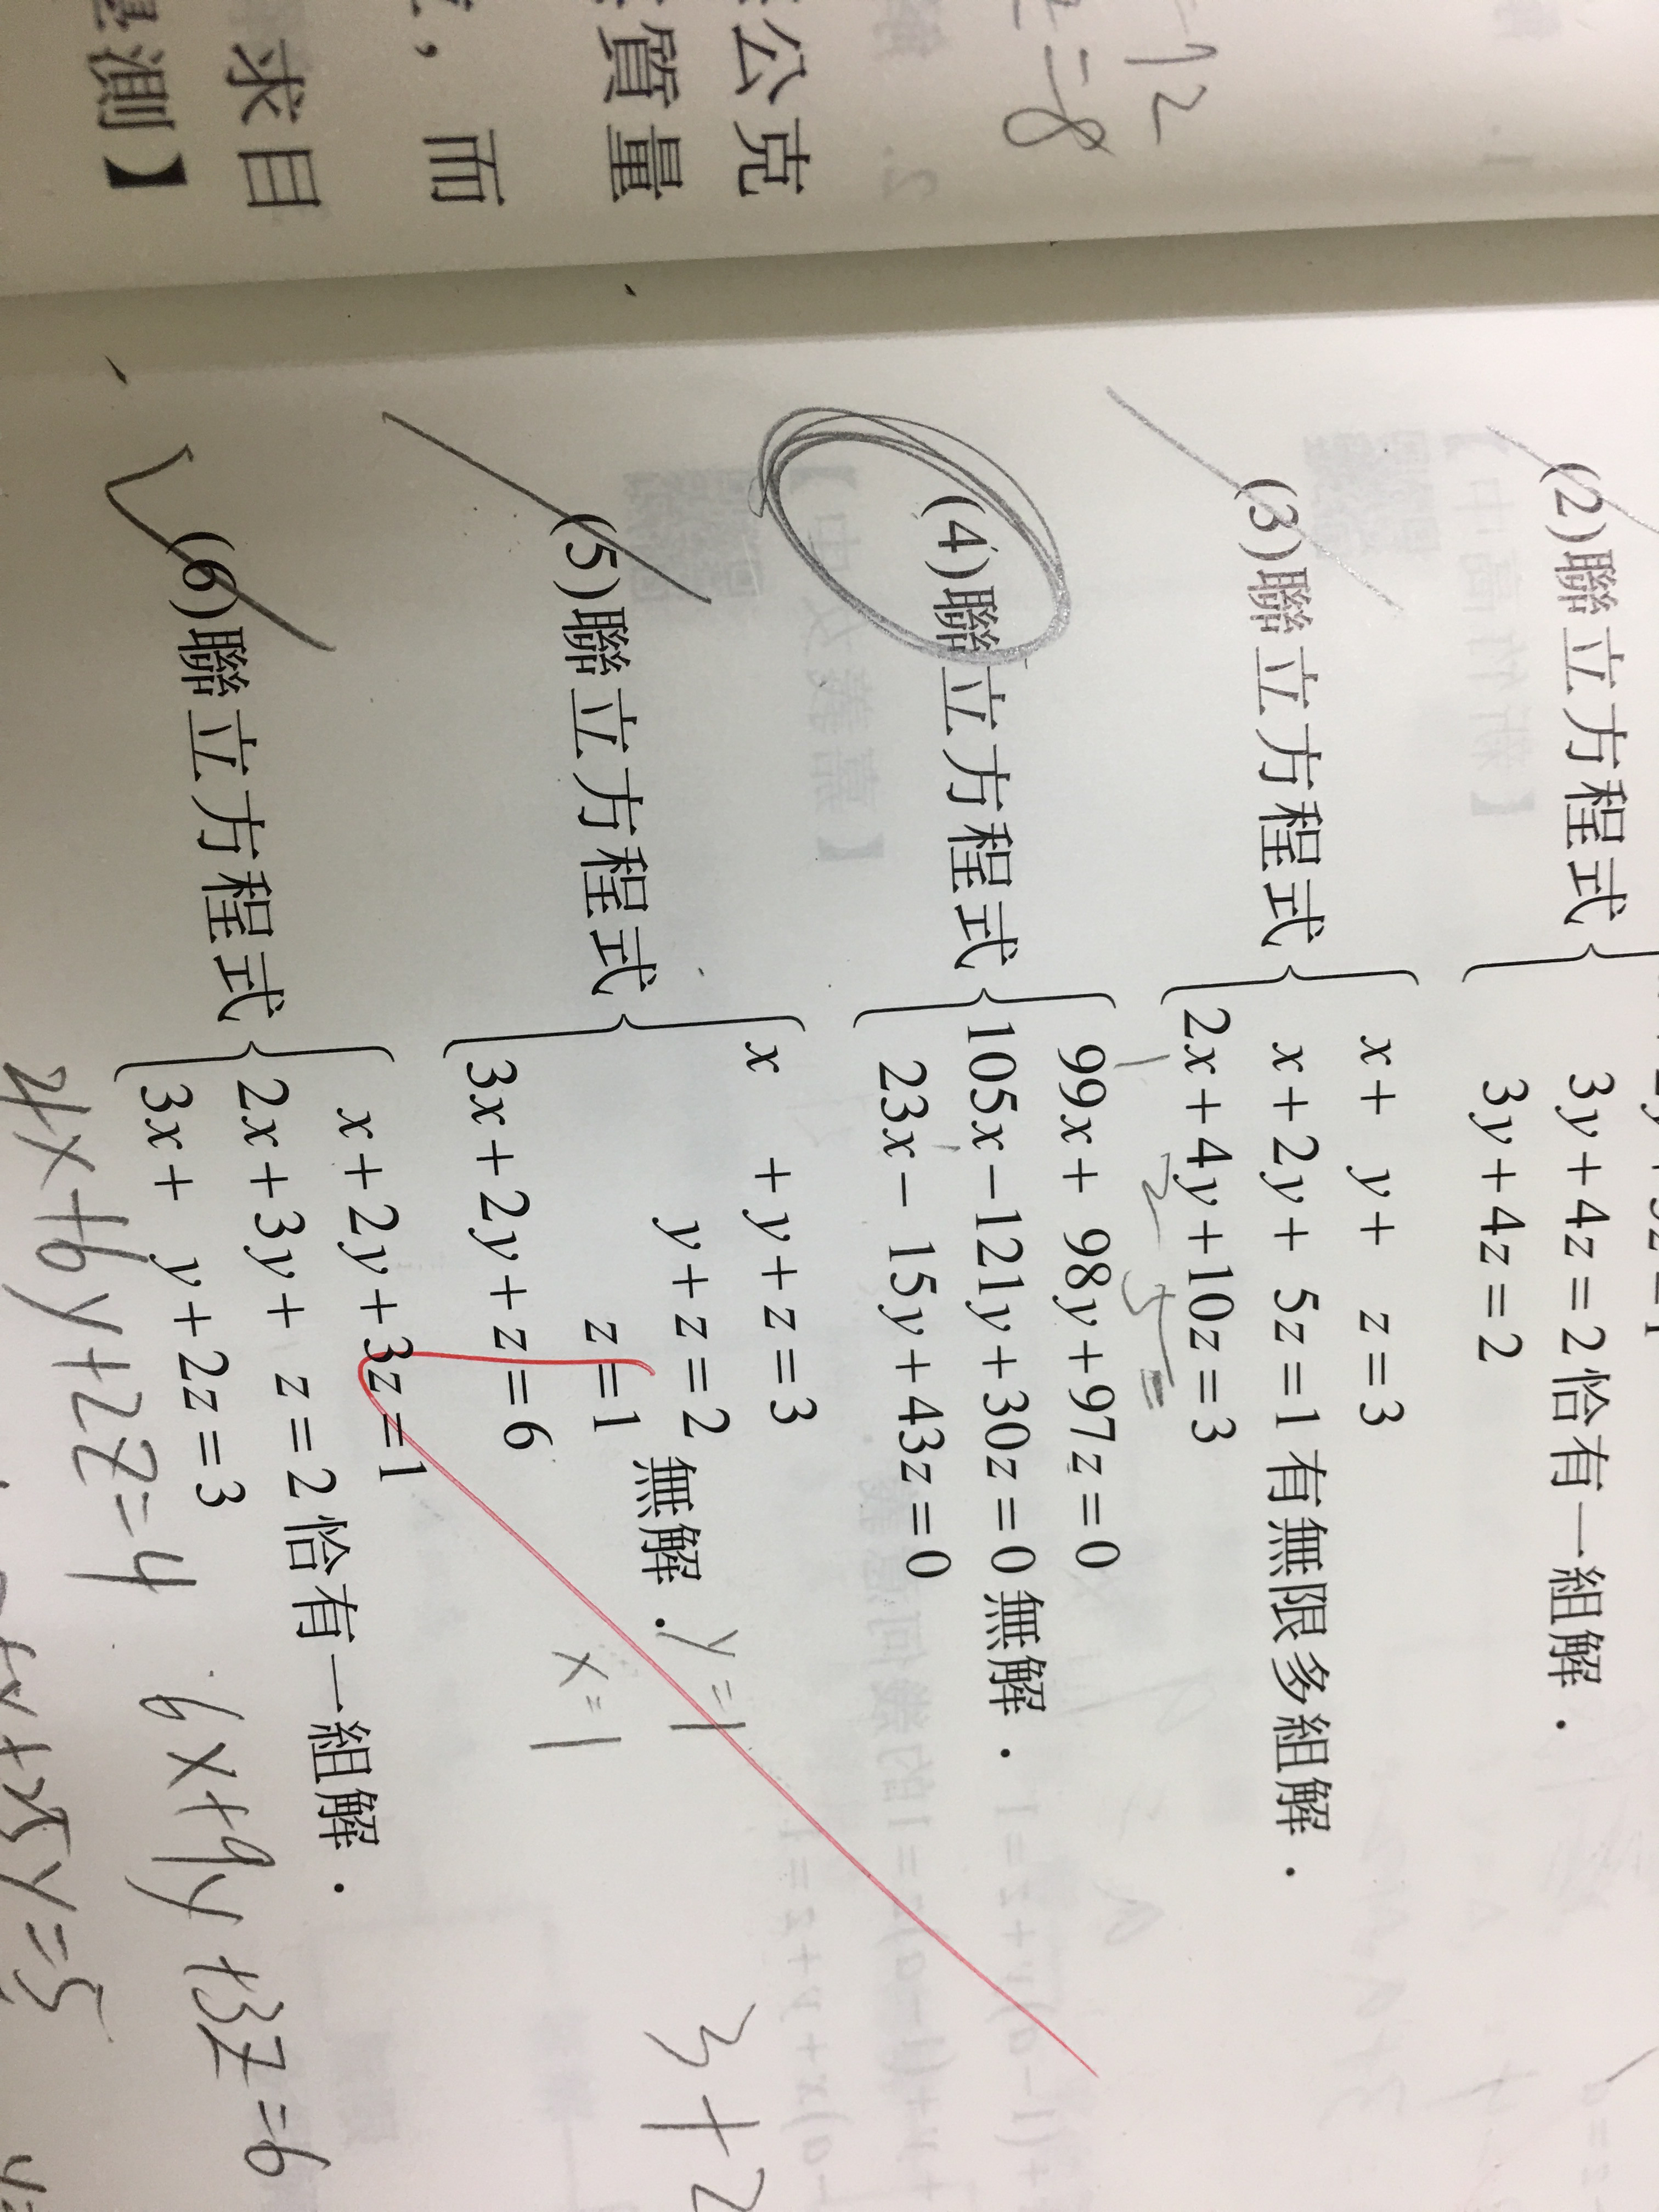 -12
=-8
公克
質量
，而
求目
測】
3y+4z=2恰有一組解．
(2)聯立方程式
3y+4z=2
x+ y+ z=3
(3)聯立方程式 x+2y+ 5z=1有無限多組解．
2x+4y+10z=3
1 2 5 =
99x+ 98y+97z=0
(4)聯立方程式 105x-121y+30z=0無解．
23x- 15y+43z=0
x +y+z=3
y+z=2
(5)聯立方程式 無解．
z=1
3x+2y+z=6
y=1
x=1
3+2
x+2y+3z=1
(6)聯立方程式 2x+3y+ z=2恰有一組解．
3x+ y+2z=3
6x+9y+3z=6
4x+6y+2z=4